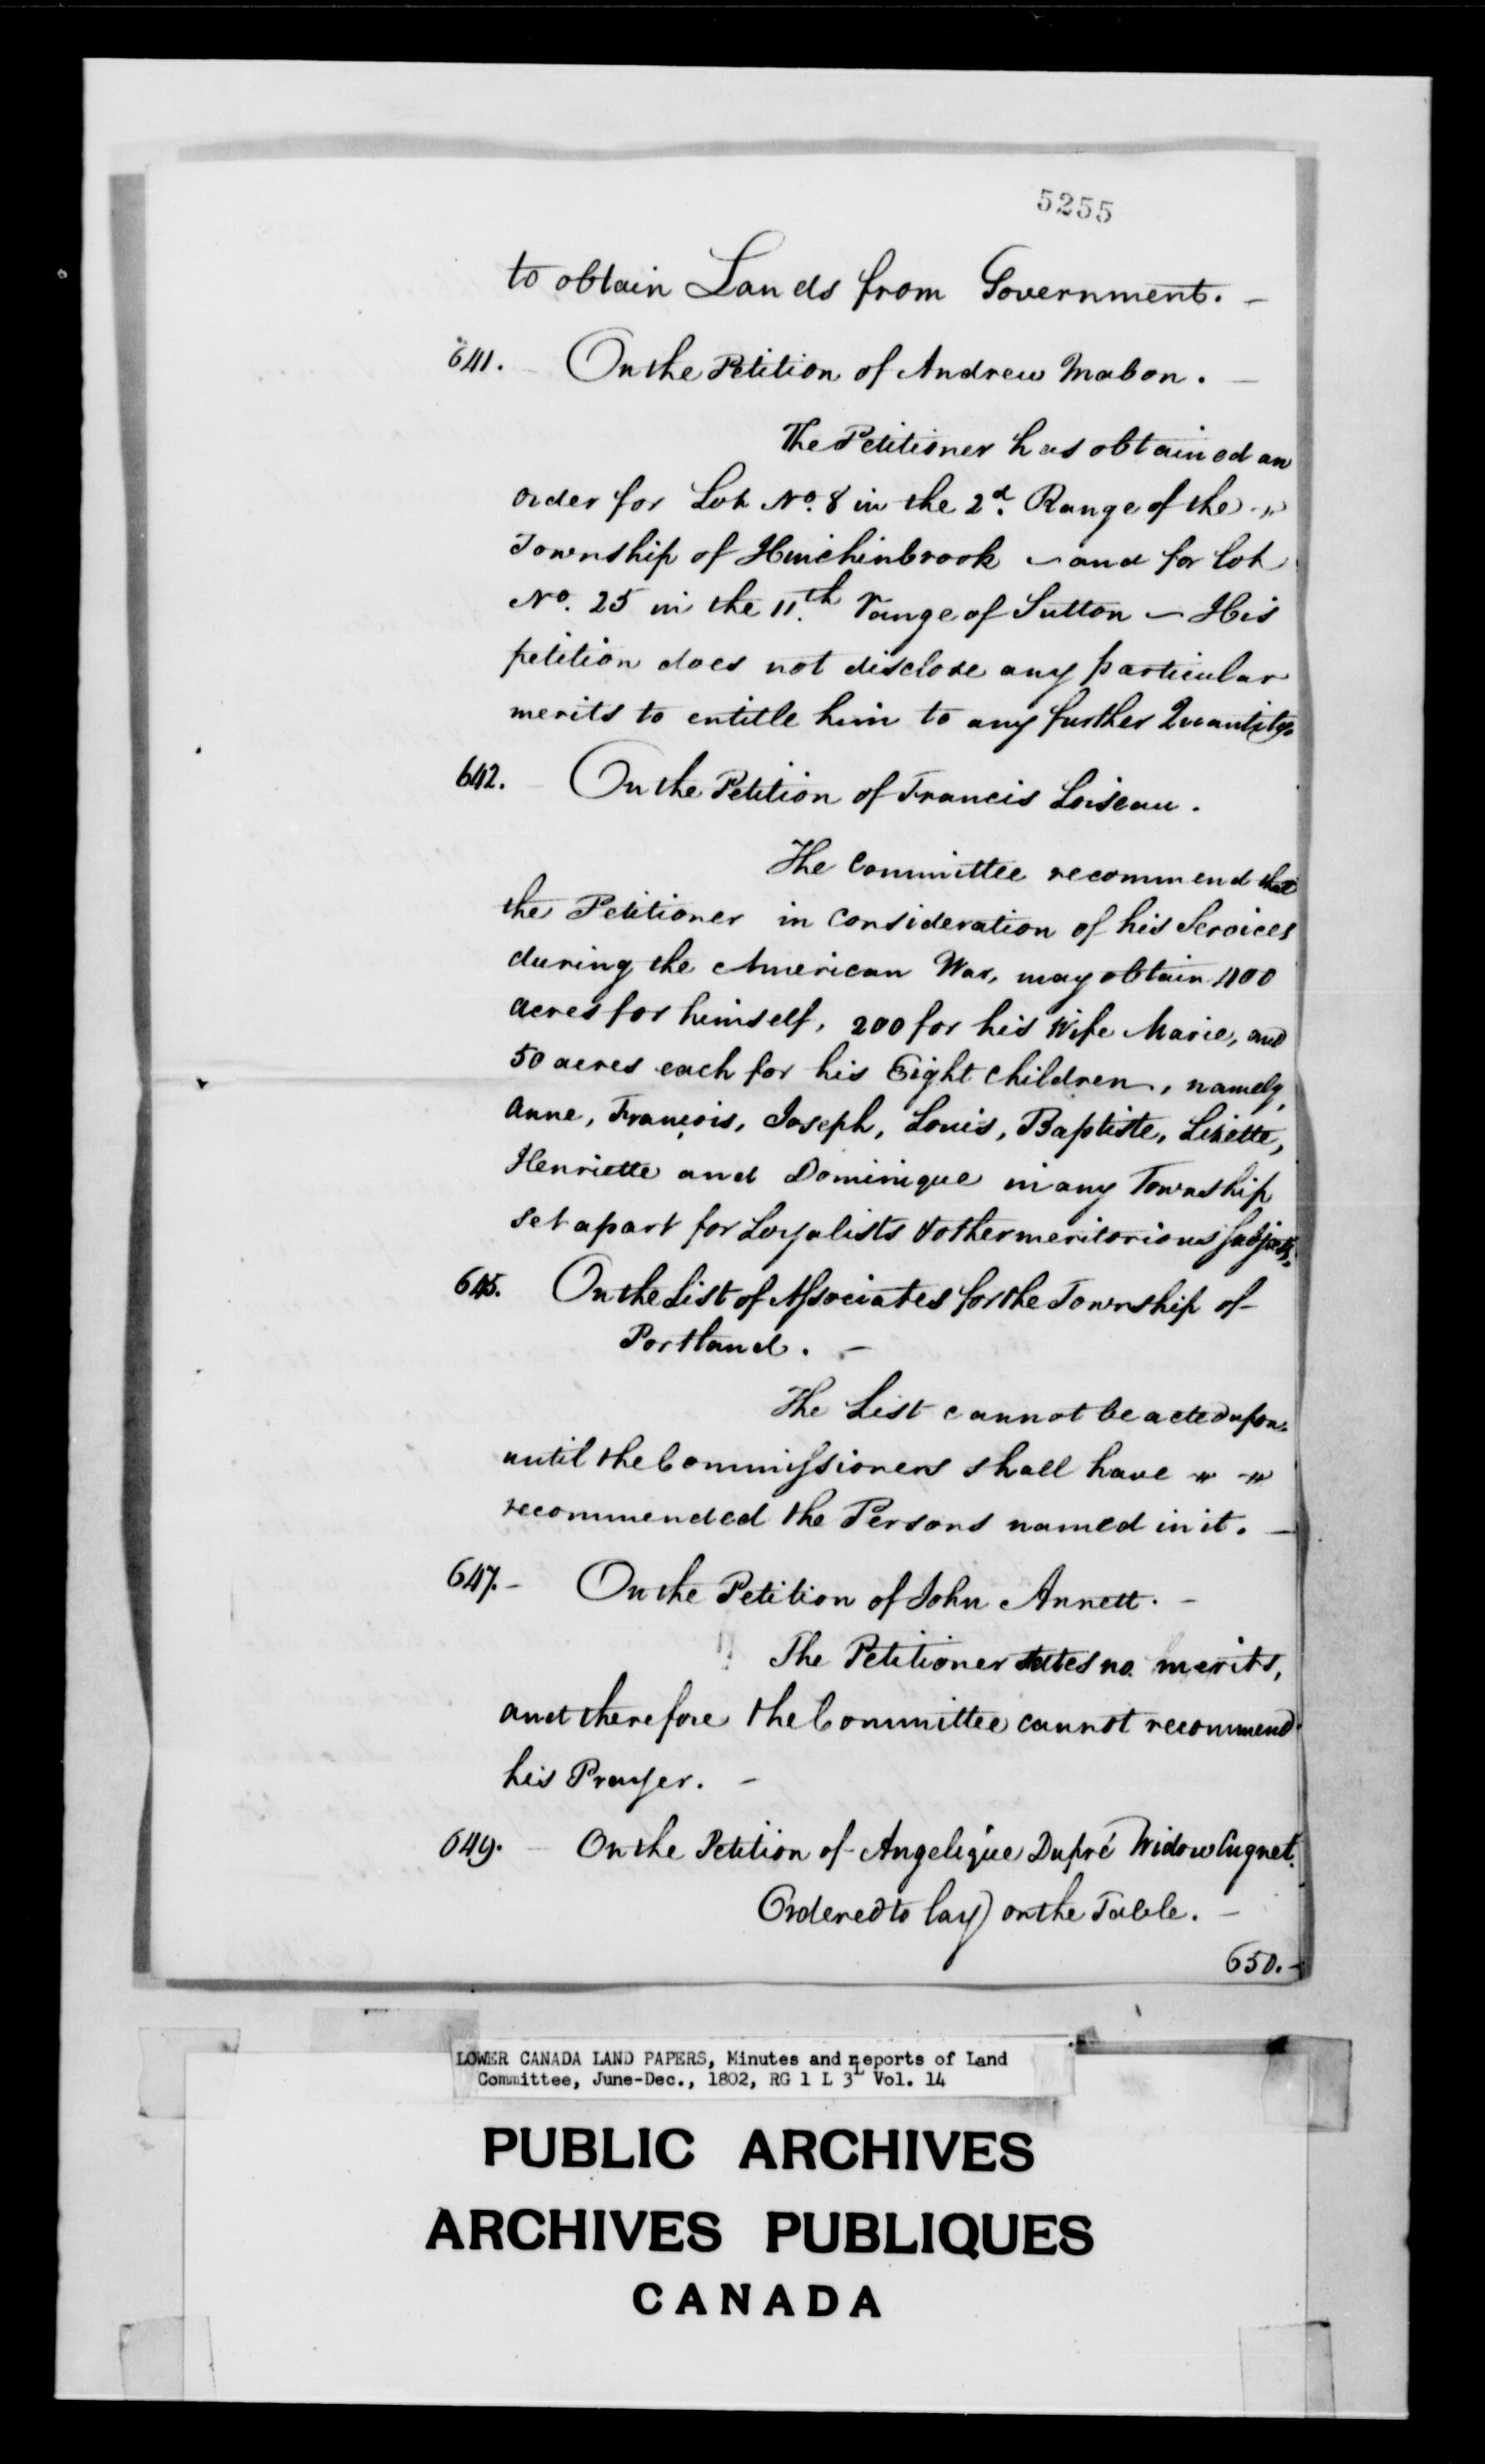 5255
to obtain Lands from Government. -
641. - On the Petition of Andrew Mabon. -
The Petitioner has obtained an
order for Lot No. 8 in the 2d. Range of the "
Township of Hinchinbrook - and for lot
No. 25 in the 11.th range of Sutton - His
petition does not disclose any particular
merits to entitle him to any further Quantity.
642. - On the Petition of Francis Loiseau.
The Committee recommend that
the Petitioner in Consideration of his Services
during the American War, may obtain 1100
acres for himself, 200 for his Wife Marie, and
50 acres each for his Eight Children, namely,
Anne, François, Joseph, Louis, Baptiste, Lizette,
Henriette and Dominique in any Township
set apart for Loyalists & other meritorious Subjects.
645. On the List of Associates for the Township of
Portland. -
The List cannot be acted upon
until the Commissioners shall have " "
recommended the Persons named in it. -
647. - On the Petition of John Annett. -
The Petitioner states no merits,
and therefore the Committee cannot recommend
his Prayer. -
649. - On the Petition of Angelique Dupré Widow Cugnet.
Ordered to lay on the Table. -
650. -
LOWER CANADA LAND PAPERS, Minutes and Reports of Land
Committee, June-Dec., 1802, RG 1 L 3L Vol. 14
PUBLIC ARCHIVES
ARCHIVES PUBLIQUES
CANADA